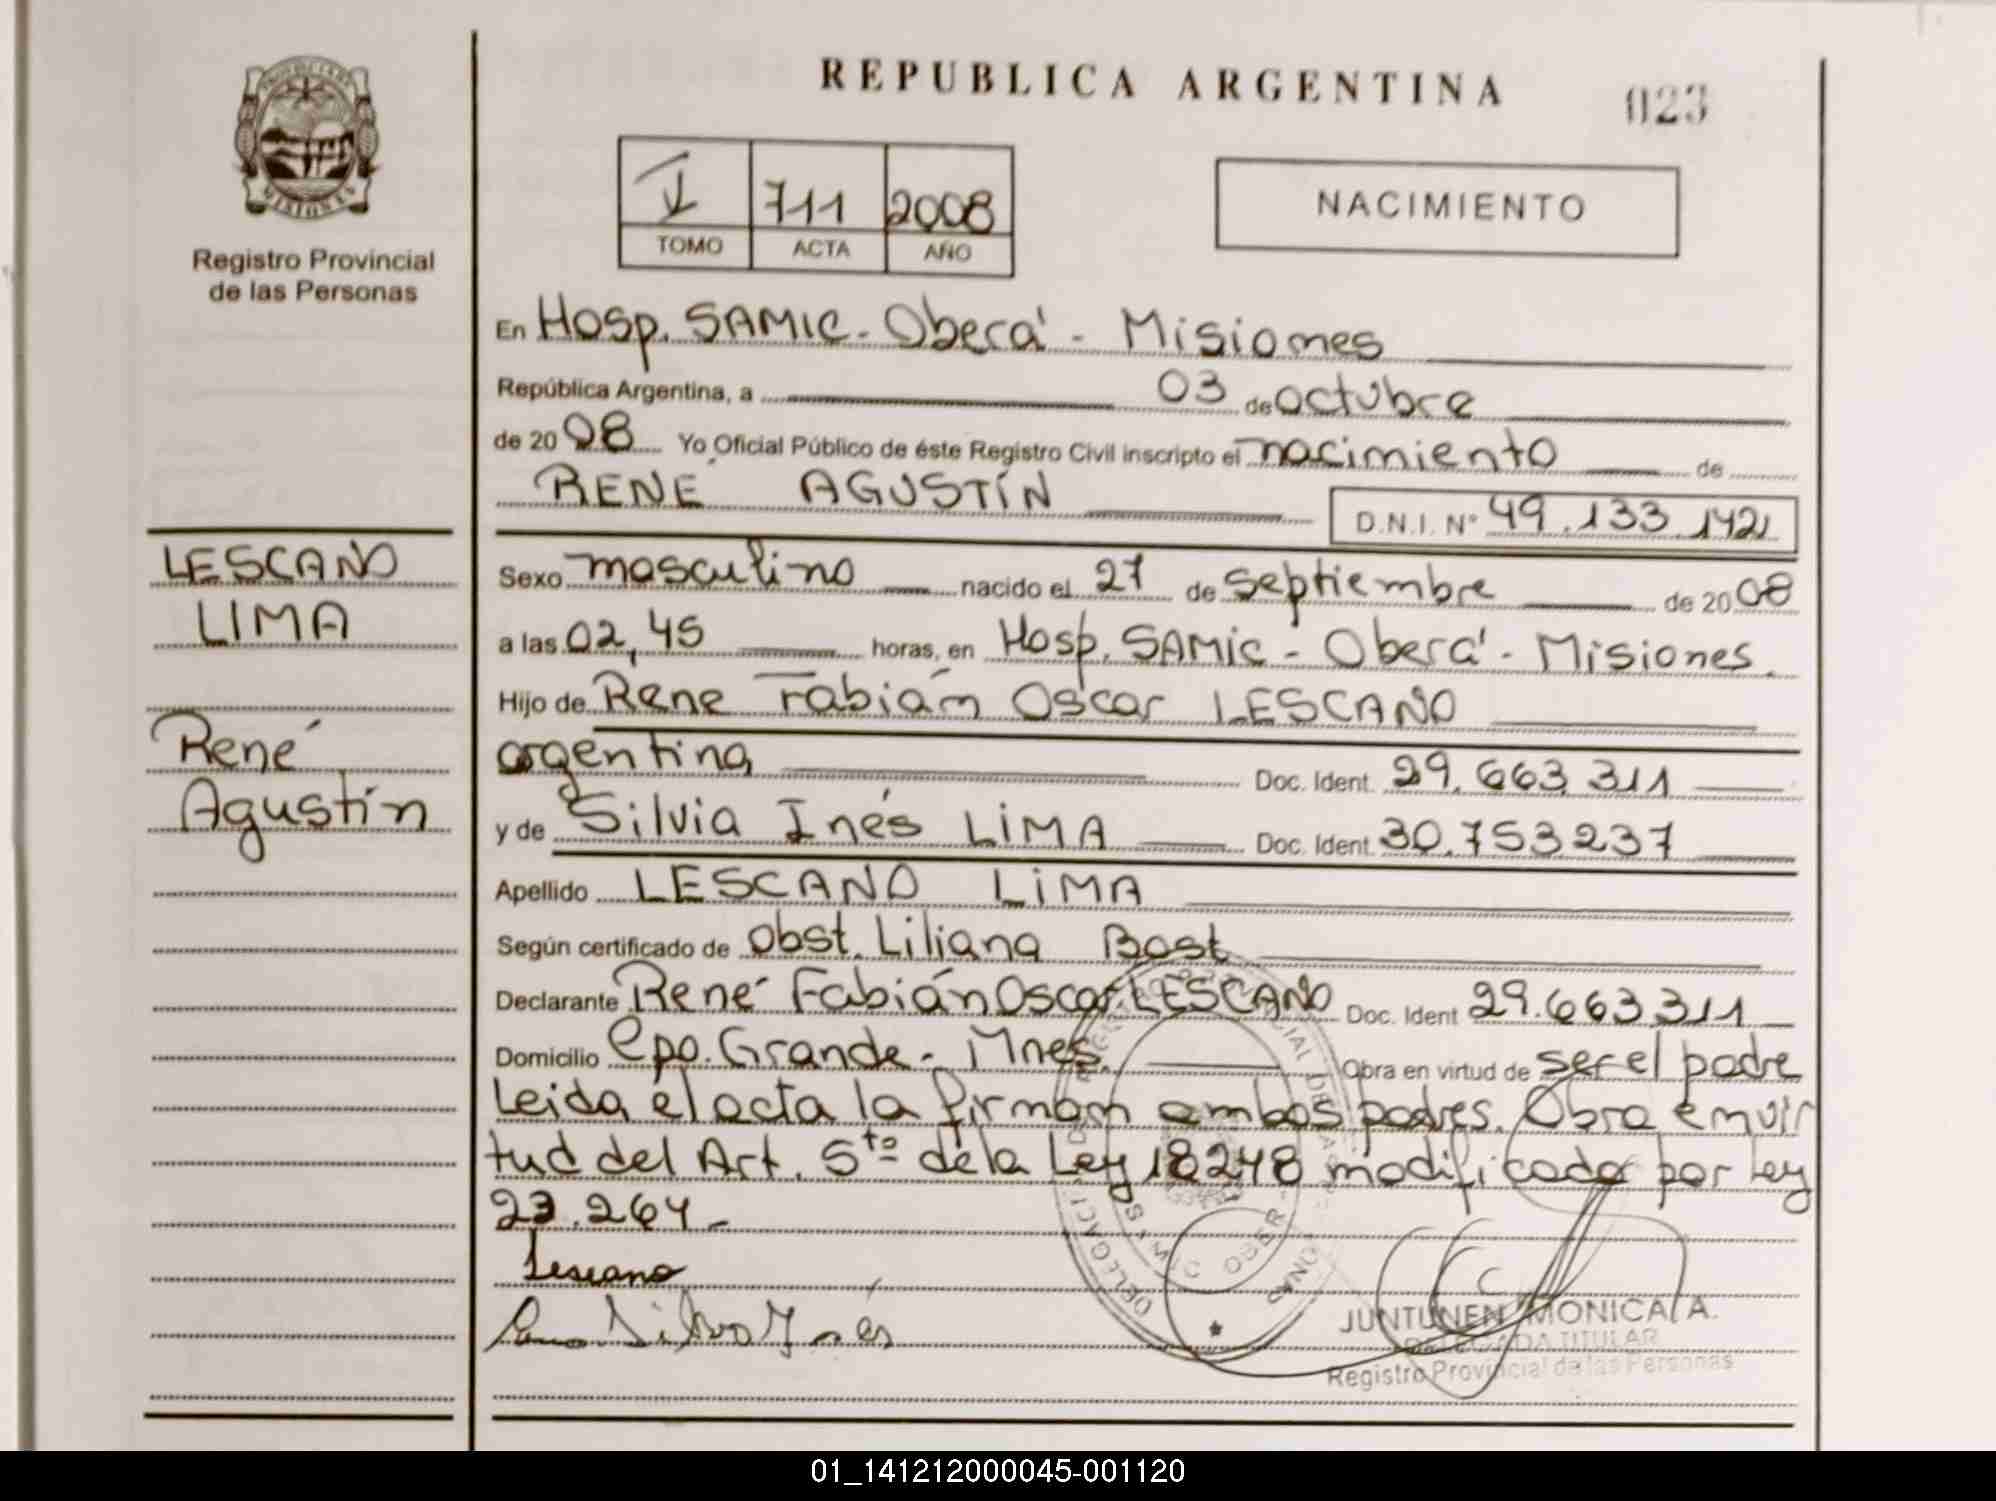 REPUBLICA ARGENTINA
023
PROVINCIA DE
MISIONES
Registro Provincial
de las Personas
I 711 2008
TOMO ACTA AÑO
NACIMIENTO
En Hosp. SAMIC - Oberá - Misiones
República Argentina, a 03 de octubre
de 2008 Yo Oficial Público de éste Registro Civil inscripto el nacimiento de
RENÉ AGUSTÍN D.N.I. Nº 49.133.142
LESCANO
LIMA
René
Agustín
Sexo masculino nacido el 27 de septiembre de 2008
a las 02,45 horas, en Hosp. SAMIC - Oberá - Misiones.
Hijo de Rene Fabián Oscar LESCANO
argentina Doc. Ident. 29.663.311
y de Silvia Inés LIMA Doc. Ident. 30.753.237
Apellido LESCANO LIMA
Según certificado de Obst. Liliana Bast
Declarante René Fabián Oscar LESCANO Doc. Ident 29.663.311
Domicilio Cpo. Grande - Mnes. Obra en virtud de ser el padre
Leida el acta la firman ambos padres. Obra en vir
tud del Art. 5to de la Ley 18248 modificada por Ley
23.264 -
Lescano
JUNTUNEN MONICA A.
DELEGADA TITULAR
Registro Provincial de las Personas
01_141212000045-001120